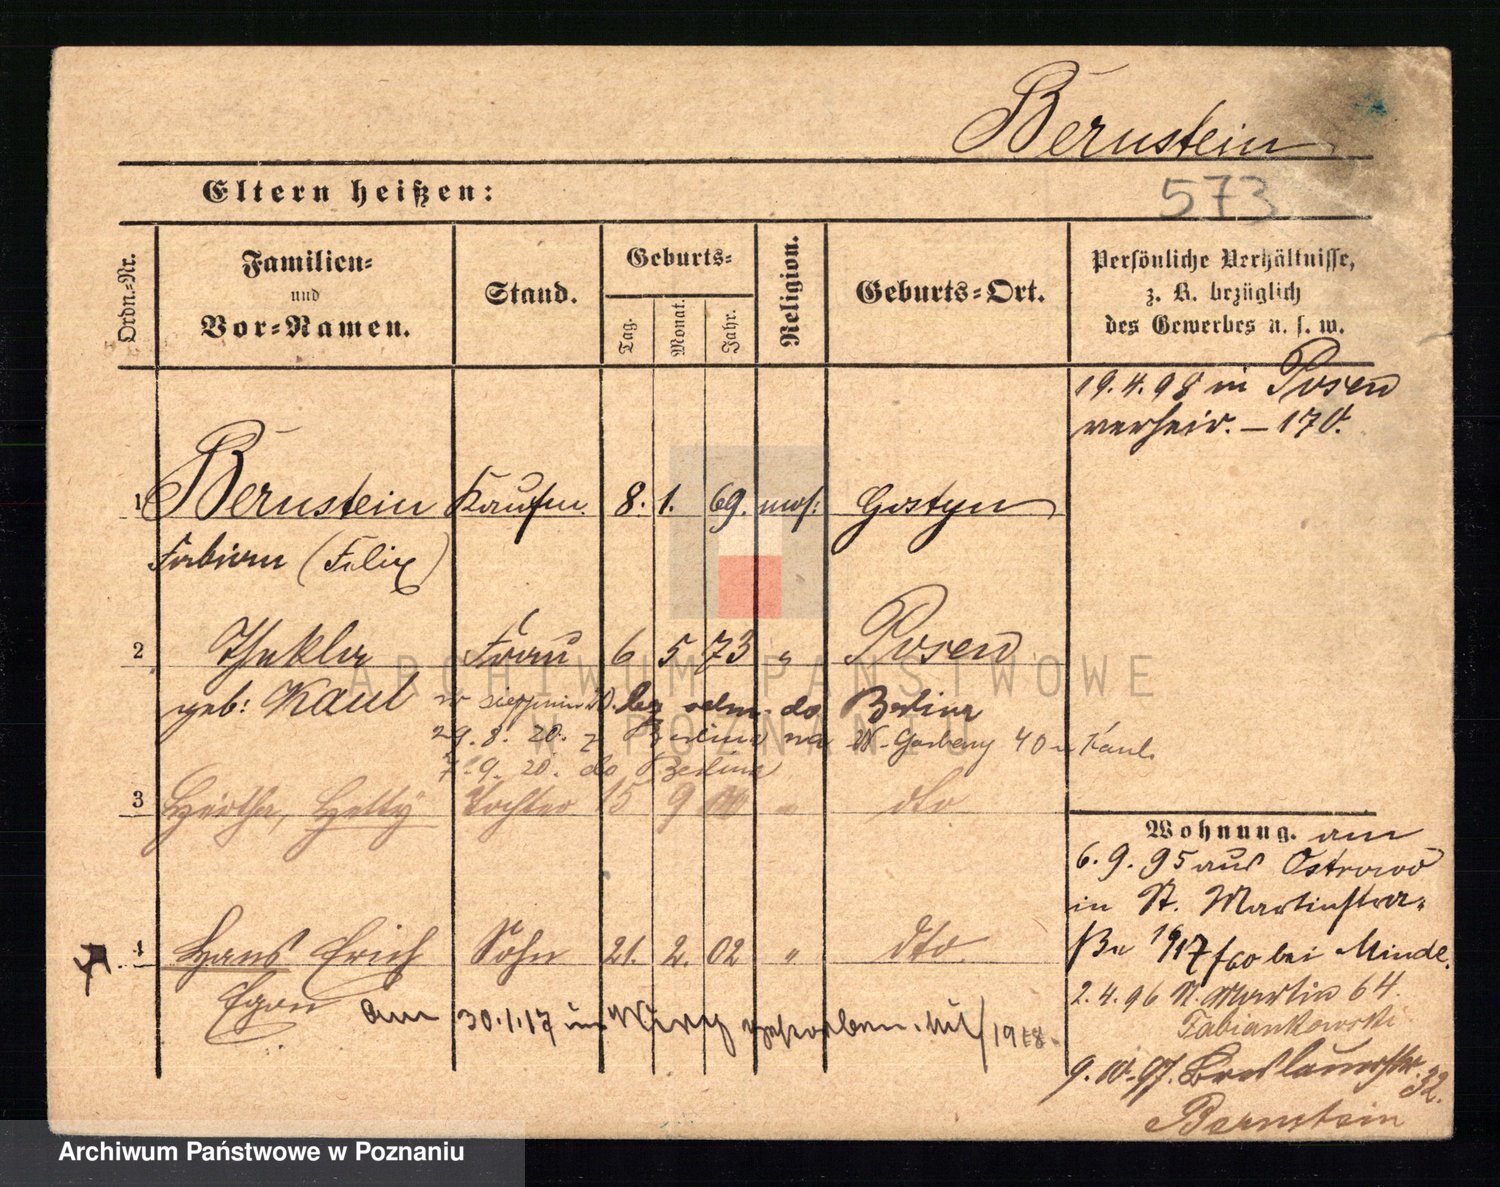 Bernstein
Eltern heißen:
573
Ordn.-Nr.
Familien-
und
Vor-Namen.
Stand.
Geburts-
Tag.
Monat.
Jahr.
Religion.
Geburts-Ort.
Persönliche Verhältnisse,
z. B. bezüglich
des Gewerbes u. s. w.
19.4.98 in Posen
verheir. – 170.
1 Bernstein Kaufm. 8. 1. 69. mos. Gostyn
Fabian (Felix)
2 Thekla Frau 6 5 73 " Posen
geb: Kaul w sierpniu 20. do Berlina
29.8.20. z Berlina na W. Garbary 40 Kaul.
7.9.20. do Berlina
3 Hertha, Hetty Tochter 15 9 00 " dto
4 Hans Erich Sohn 21. 2. 02 " dto.
Egon
am 30.1.17 in verstorben. 1918.
Wohnung. am
6.9.95 aus Ostrowo
in St. Martinstra-
ße 17/60 bei Minde.
2.4.96 St. Martin 64.
Fabiankowski
9.10.97. Breslauerstr. 32.
Bernstein
ARCHIWUM PAŃSTWOWE
W POZNANIU
Archiwum Państwowe w Poznaniu